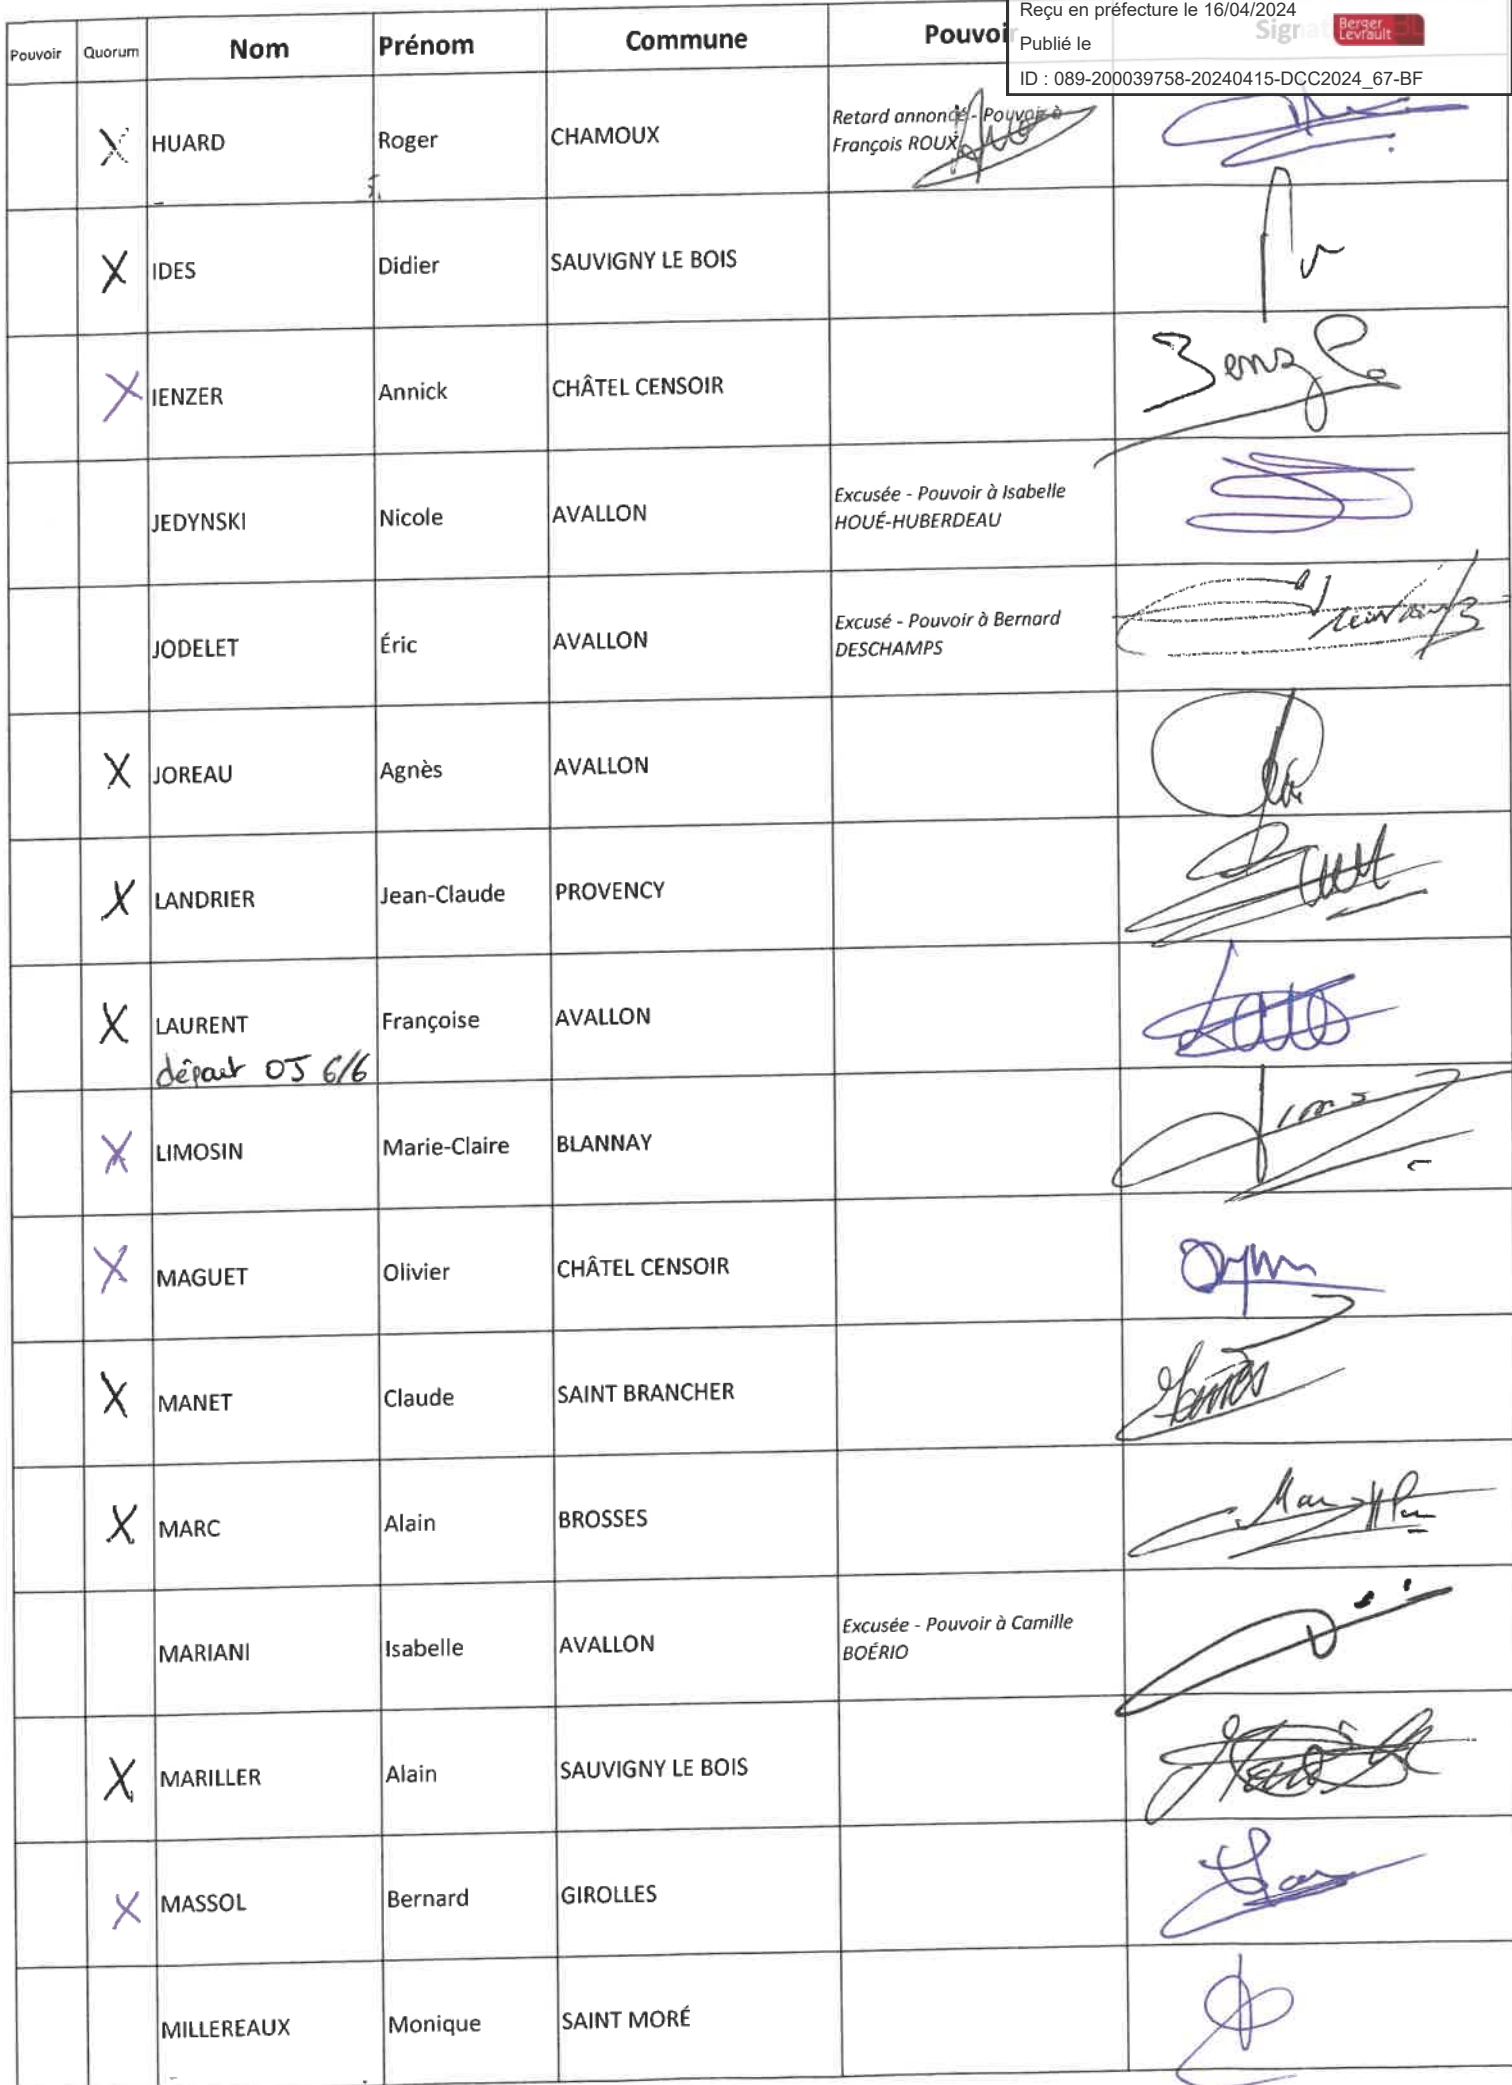 Reçu en préfecture le 16/04/2024
Publié le
Berger
Levrault
ID : 089-200039758-20240415-DCC2024_67-BF
Pouvoir Quorum Nom Prénom Commune Pouvoir
X HUARD Roger CHAMOUX Retard annoncé - Pouvoir à
François ROUX
X IDES Didier SAUVIGNY LE BOIS
X IENZER Annick CHÂTEL CENSOIR
JEDYNSKI Nicole AVALLON Excusée - Pouvoir à Isabelle
HOUÉ-HUBERDEAU
JODELET Éric AVALLON Excusé - Pouvoir à Bernard
DESCHAMPS
X JOREAU Agnès AVALLON
X LANDRIER Jean-Claude PROVENCY
X LAURENT Françoise AVALLON
départ OJ 6/6
X LIMOSIN Marie-Claire BLANNAY
X MAGUET Olivier CHÂTEL CENSOIR
X MANET Claude SAINT BRANCHER
X MARC Alain BROSSES
MARIANI Isabelle AVALLON Excusée - Pouvoir à Camille
BOÉRIO
X MARILLER Alain SAUVIGNY LE BOIS
X MASSOL Bernard GIROLLES
MILLEREAUX Monique SAINT MORÉ